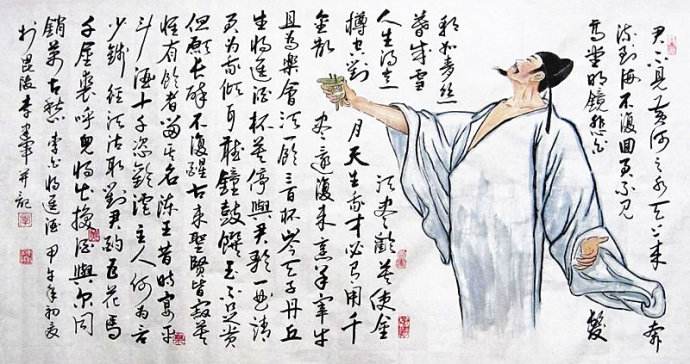 君不见黄河之水天上来奔
流到海不復回君不见
高堂明鏡悲白髮
朝如青丝
暮成雪
人生得意须尽歡莫使金
樽空對月天生我才必有用千
金散尽還復来烹羊宰牛
且為樂會须一飲三百杯岑夫子丹丘
生將進酒杯莫停與君歌一曲請
君为我倾耳聽鐘鼓饌玉不足贵
但願长醉不復醒古来聖賢皆寂莫
惟有飲者留其名陈王昔時宴平
斗酒十千恣歡謔主人何为言
少錢径须沽取對君酌五花馬
千金裘呼兒將出换酒與尔同
銷萬古愁 李白將進酒 甲午年初夏
於毘陵李 并記